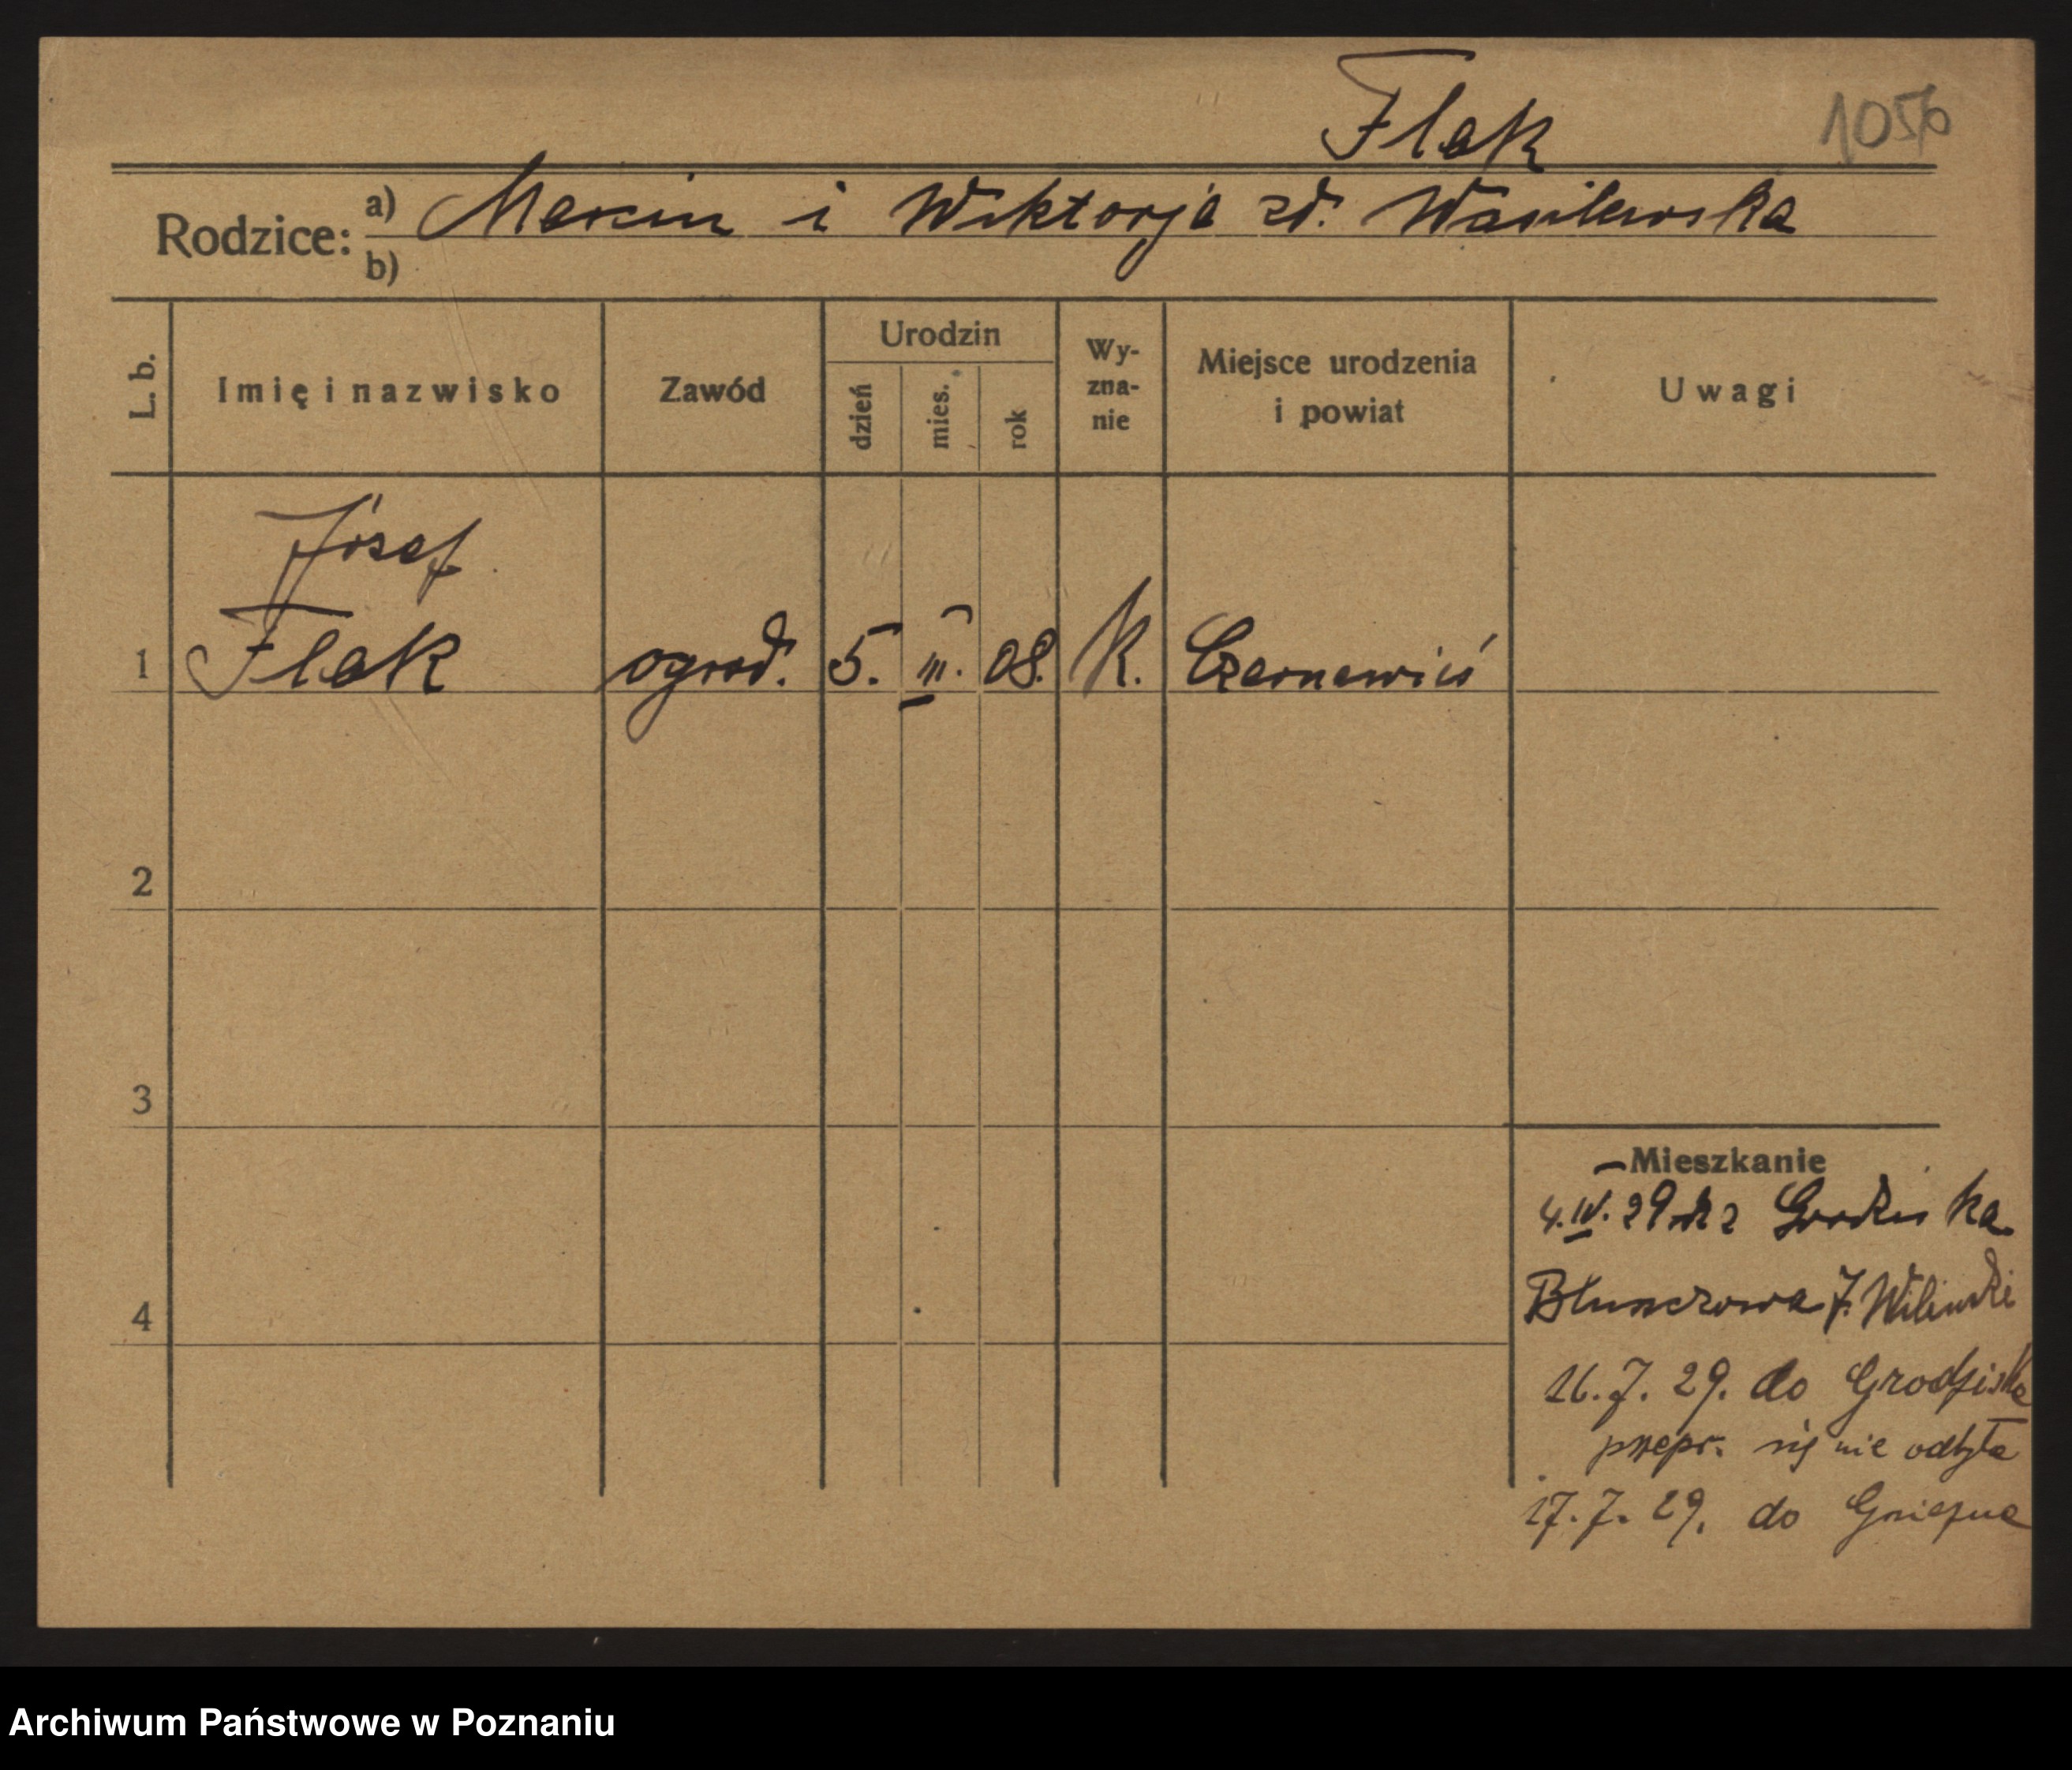 Flak 1056
Rodzice: a) Marcin i Wiktorja zd. Wasilewska
b)
L. b. Imię i nazwisko Zawód Urodzin dzień mies. rok Wyzna-nie Miejsce urodzenia i powiat Uwagi
Józef
1 Flak ogrod. 5. III. 08. K. Czarnawieś
2
3
Mieszkanie
4. IV. 29 z Grodziska
4 J. Wilinski
16. 7. 29. do Grodziska
przepr. się nie odbyła
17. 7. 29. do Gniezna
Archiwum Państwowe w Poznaniu